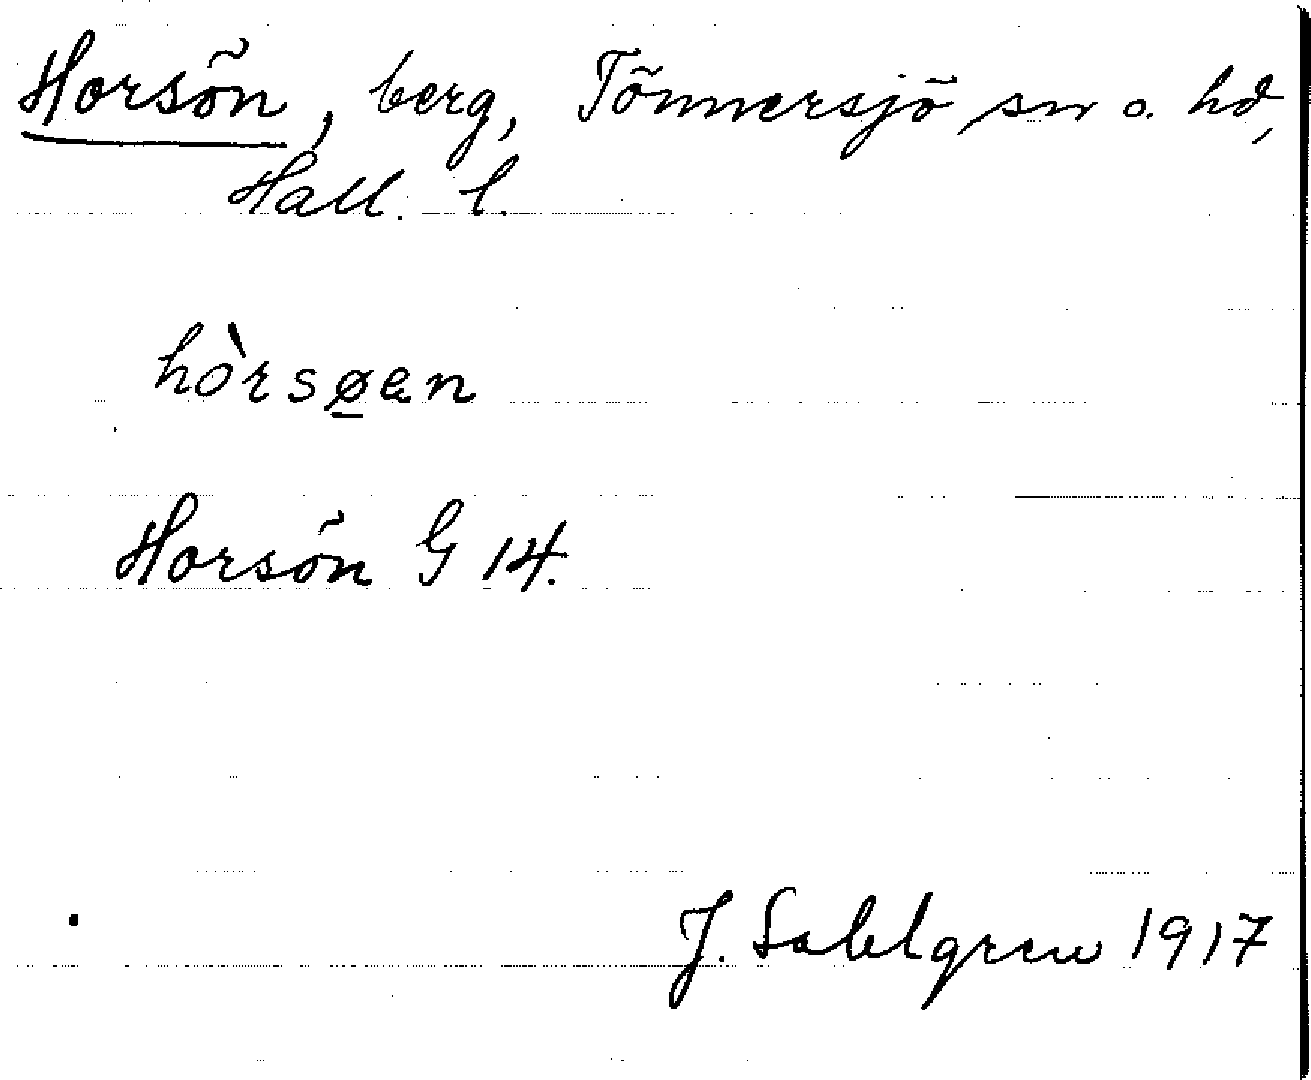 Horsön, berg, Tönnersjö sn o. hd,
Hall. l.
hòrsø̲an
Horsön G 14.
J. Sahlgren 1917